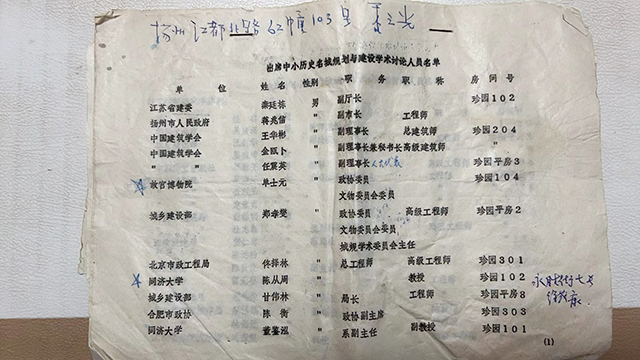 扬州 江都北路 62幢 103室
出席中小历史名城规划与建设学术讨论人员名单
单 位 姓 名 性别 职 务 职 称 房 间 号
江苏省建委 栾廷栋 男 副厅长 珍园102
扬州市人民政府 蒋兆信 " 副市长 工程师
中国建筑学会 王华彬 " 副理事长 总建筑师 珍园204
中国建筑学会 金瓯卜 " 副理事长兼秘书长高级建筑师 "
" " 任震英 " 副理事长 人大代表 珍园平房3
故宫博物院 单士元 " 政协委员 珍园104
文物委员会委员
城乡建设部 郑孝燮 " 政协委员 高级工程师 珍园平房2
文物委员会委员
城规学术委员会主任
北京市政工程局 佟绎林 " 总工程师 高级工程师 珍园301
同济大学 陈从周 " 教授 珍园102
城乡建设部 甘伟林 " 局长 工程师 珍园平房8
合肥市政协 陈 衡 " 政协副主席 珍园303
同济大学 董鉴泓 " 系副主任 副教授 珍园101
(1)